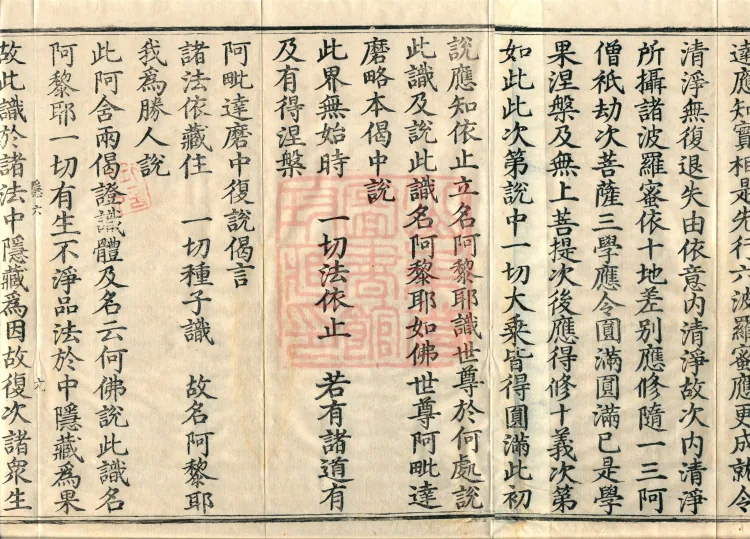 達應知實相是先行六波羅蜜應更成就令
清淨無復退失由依意內清淨故次內清淨
所攝諸波羅蜜依十地差別應修隨一三阿
僧祇劫次菩薩三學應令圓滿圓滿已是學
果涅槃及無上菩提次後應得修十義次第
如此此次第說中一切大乘皆得圓滿此初
說應知依止立名阿黎耶識世尊於何處說
此識及說此識名阿黎耶如佛世尊阿毗達
磨略本偈中說
此界無始時 一切法依止 若有諸道有
及有得涅槃
阿毗達磨中復說偈言
諸法依藏住 一切種子識 故名阿黎耶
我為勝人說
此阿含兩偈證識體及名云何佛說此識名
阿黎耶一切有生不淨品法於中隱藏為果
故此識於諸法中隱藏為因故復次諸眾生
六
六